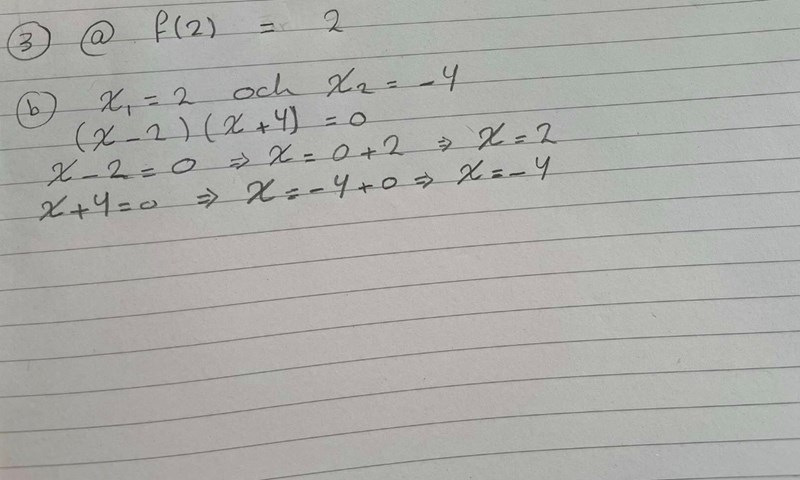 ③ ⓐ f(2) = 2
ⓑ x₁ = 2 och x₂ = -4
(x-2)(x+4) = 0
x-2=0 ⇒ x=0+2 ⇒ x=2
x+4=0 ⇒ x=-4+0 ⇒ x=-4